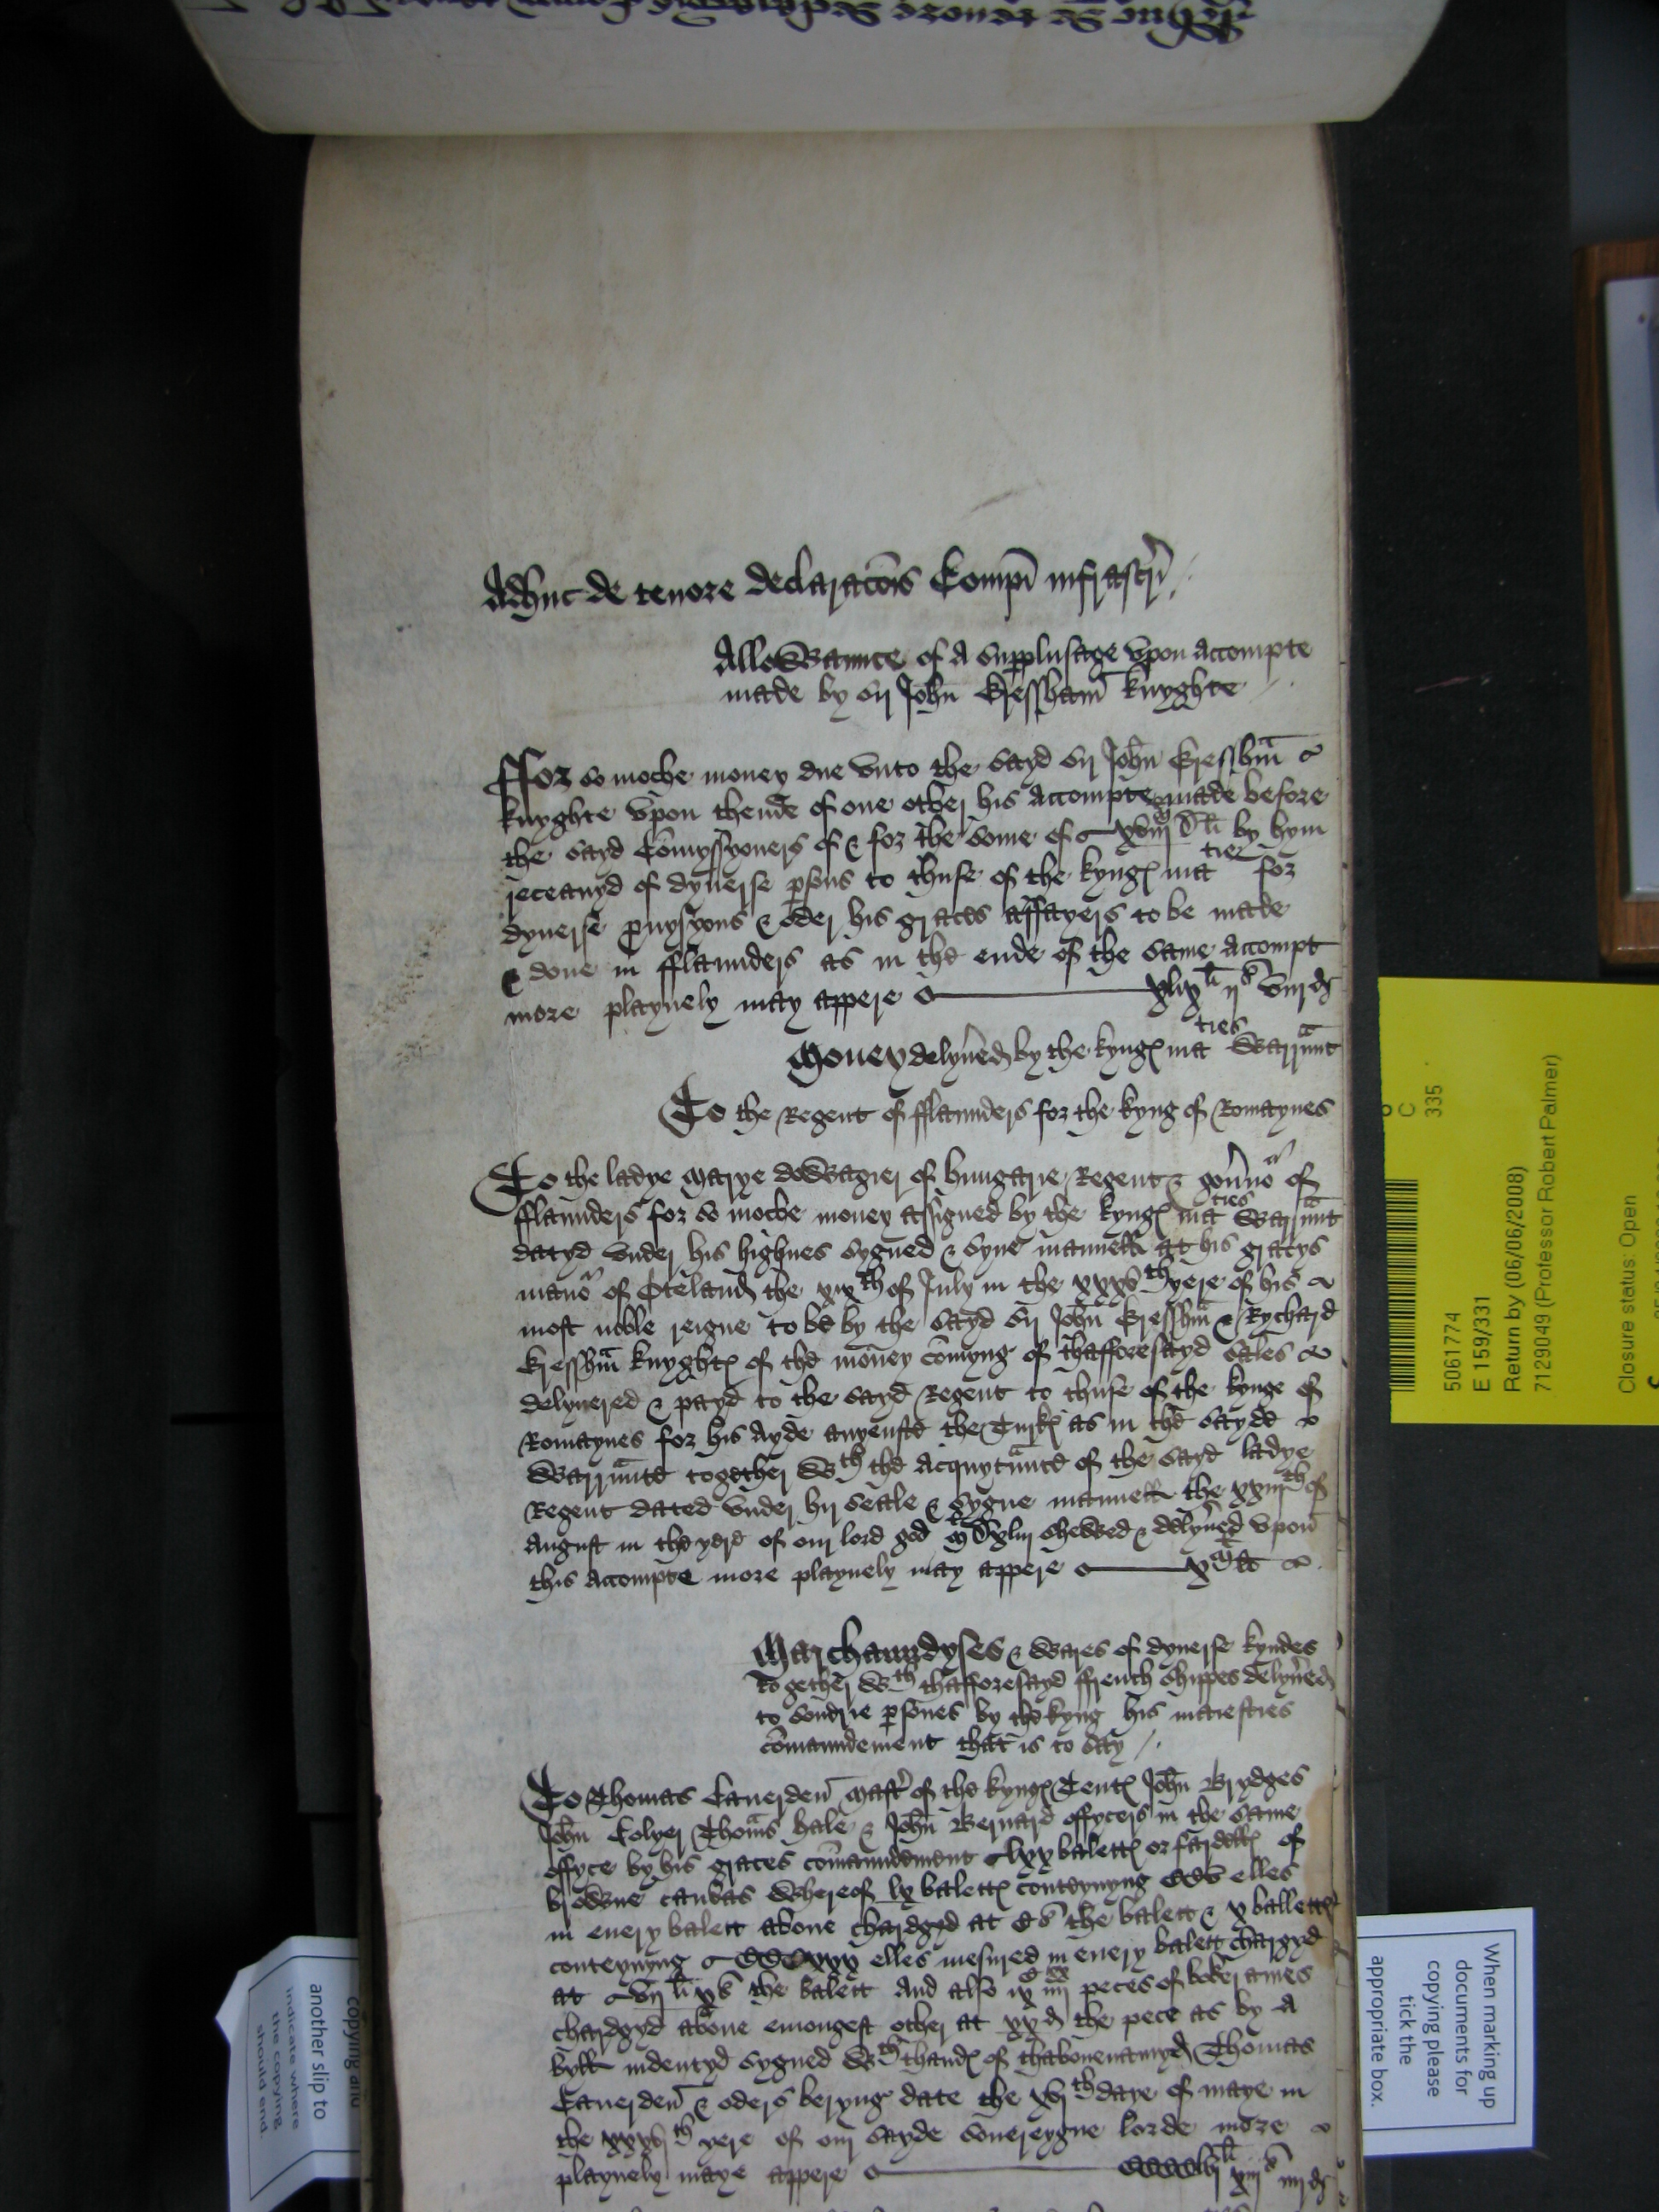 Adhuc de tenore declaracois Compi infrascr
Allowaunce of a Supplusage upon accompte
made by Sr John Gressham knyghte
ffor so moche money due unto the sayd Sr John Gresshm
knyghte upon thende of one other his accompte made before
the sayd Comyssyoners of & for the some of xviij D li by hym
receauyd of dyuerse psons to thuse of the kyngs maties for
dyuerse puysyons & oder his graces affayers to be made
& done in fflaunders as in the ende of the same accompt
more playnely may appere xlix li ij s viij d
Money delyued by the kyngs maties Warraunt
To the Regent of fflaunders for the kyng of Romaynes
To the ladye Marye dowagier of hungarie Regent & gouno of
fflaunders for so moche money assigned by the kyngs maties Warraunt
datyd under his highnes sygned & syne manuell at his gracys
mano of Oteland the xix th of July in the xxxv th yere of his
most noble reigne to be by the sayd Sr John Gresshm & Rychard
Gresshm knyghts of the money comyng of thafforesayd sales
delyuered & payd to the sayd Regent to thuse of the kynge of
Romaynes for his ayde ayenste the Turks as in the sayde
Warraunte together wth the acquytaunce of the sayd ladye
Regent dated under hir seale & sygne manuell the xxiij th of
August in the yere of our lord god M D xliij shewed & delyued upon
this accompte more playnely may appere x M li
Marchaundyses & wares of dyuerse kyndes
together wth thafforesayd ffrench shippes delyued
to sondrie psones by the kyng his maiesties
comaundement that is to say
To Thomas Cauerden Mastr of the kyngs Tents John Brydges
John Colyer Thoms hale & John Bernard offycers in the same
offyce by his graces comaundement lxx baletts or fardells of
browne canvas whereof lx baletts conteynyng CCv elles
in euery balett aboue chardgyd at C s the balett & x balletts
conteynyng CCCxxx elles mesured in euery balett chargyd
at vij li x s the balett And also ix C iiij xx peces of bokerames
chardgyd aboue emongest other at xx d the pece as by a
byll indentyd sygned wth thands of thabouenamyd Thomas
Cauerden & oders beryng date the xvj th daye of maye in
the xxxvj th yere of our sayde souereygne lorde more
playnely maye appere CCCClvj li xiij s iiij d
5061774
E 159/331
Return by (06/06/2008)
7129049 (Professor Robert Palmer)
Closure status: Open
C
335
When marking up
documents for
copying please
tick the
appropriate box.
copying and
another slip to
indicate where
the copying
should end.